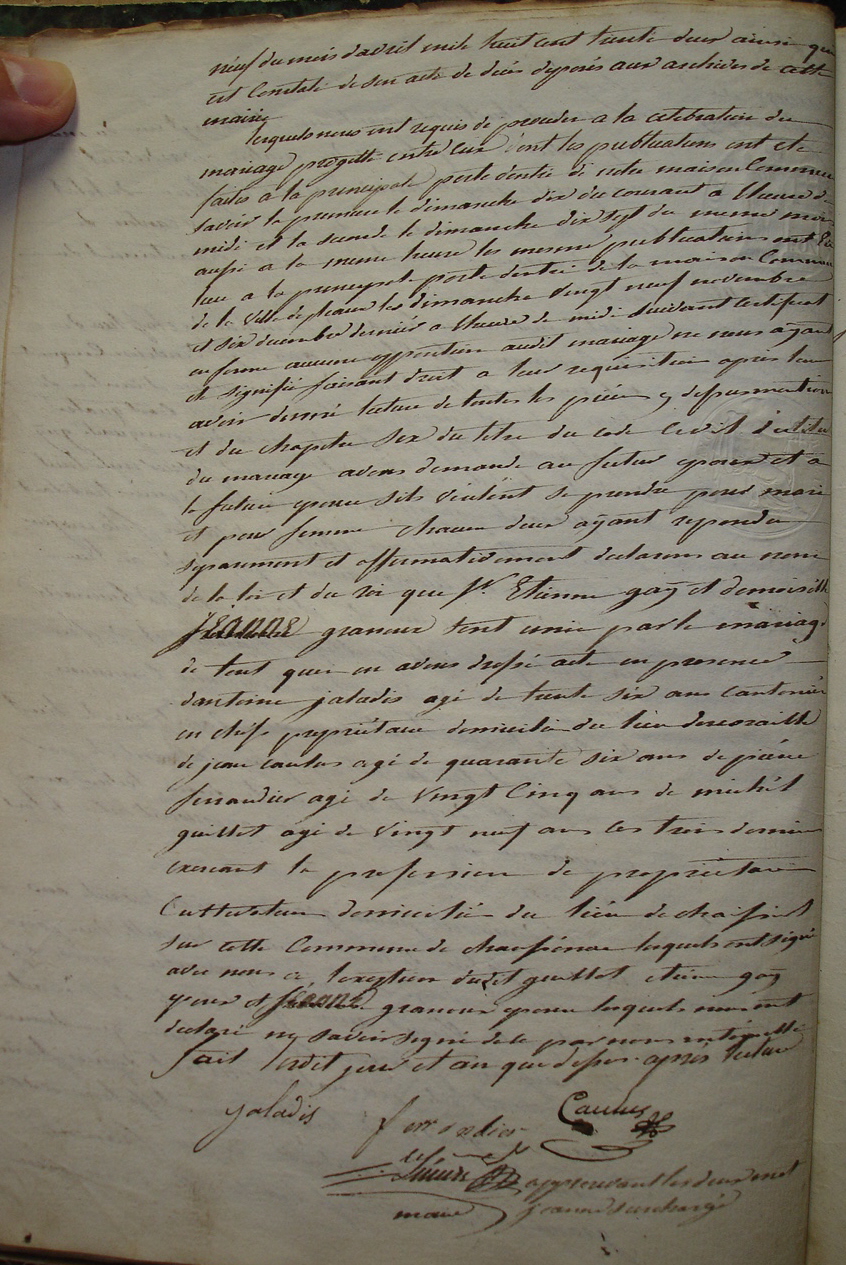 neuf du mois davril mile huit cent trente deux ainsi que
est Constate de son acte de décés déposés aux archives de cette
mairie
lesquels nous ont requis de proceder a la celebration du
mariage progetté entre eux dont les publications ont eté
faites a la principale porte dentrée de notre maison Commune
savoir la premiere le dimanche dix du courant a lheure de
midi et la seconde le dimanche dix sept du meme mois
aussi a la meme heure les meme publications ont Eu
lieu a la principale porte dentrée de la maison Commune
de la ville de pleaux les dimanche vingt neuf novembre
et six decembre dernier a lheure de midi suivant certificat
en forme aucune opposition audit mariage ne nous ayant
eté signifié faisant droit a leur requisition après leur
avoir donné lecture de toutes les pièces y
et du chapitre six du titre du code Civil
du mariage avons demandé au futur epoux et a
la future epouse sils veulent se prendre pour mari
et pour femme chacun deux ayant repondu
separement et affirmativement declarons au nom
de la loi et du roi que Sr Etienne gay et demoiselle
Jeanne graneux sont unis par le mariage
de tout quoi en avons dressé acte en presence
dantoine jaladis agé de trente six ans cantonier
en chef propriétaire domicilié du lieu
de jean caulus agé de quarante six ans de pièrre
ferrandier agé de vingt Cinq ans de michel
guillot agé de vingt neuf ans les trois dernier
exercant la profession de propriétaire
Cultivateur domicilié du lieu de
sur cette Commune de lesquels ont signé
avec nous a lexception dudit guillot etiene gay
epoux et Jeanne graneux epouse lesquels nous ont
declaré ny savoir signé de le par nous
fait ledit jour et an que dessus après lecture
Jaladis ferrandier Caulus
approuvant les deux mot
maire jeanne surchargé